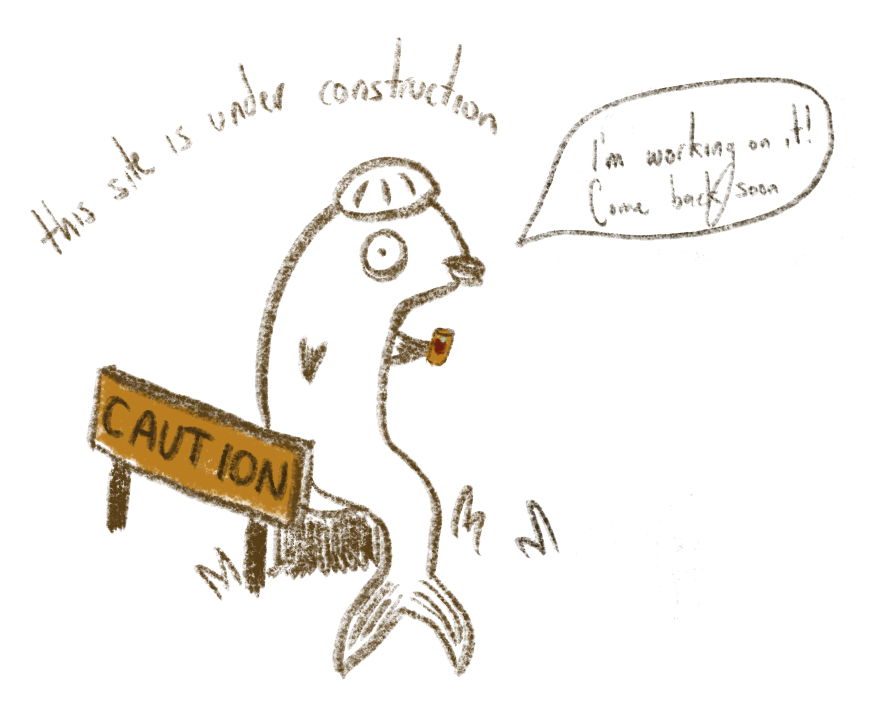 this site is under construction
I'm working on it!
Come back soon
CAUTION